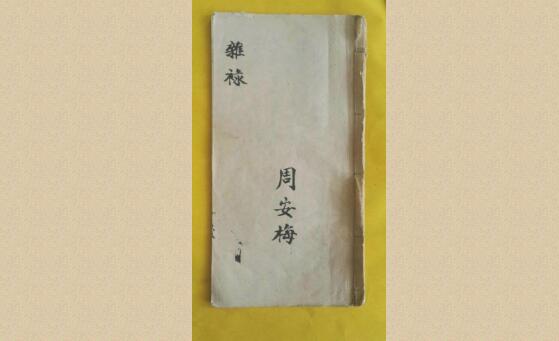 雜禄
周安梅